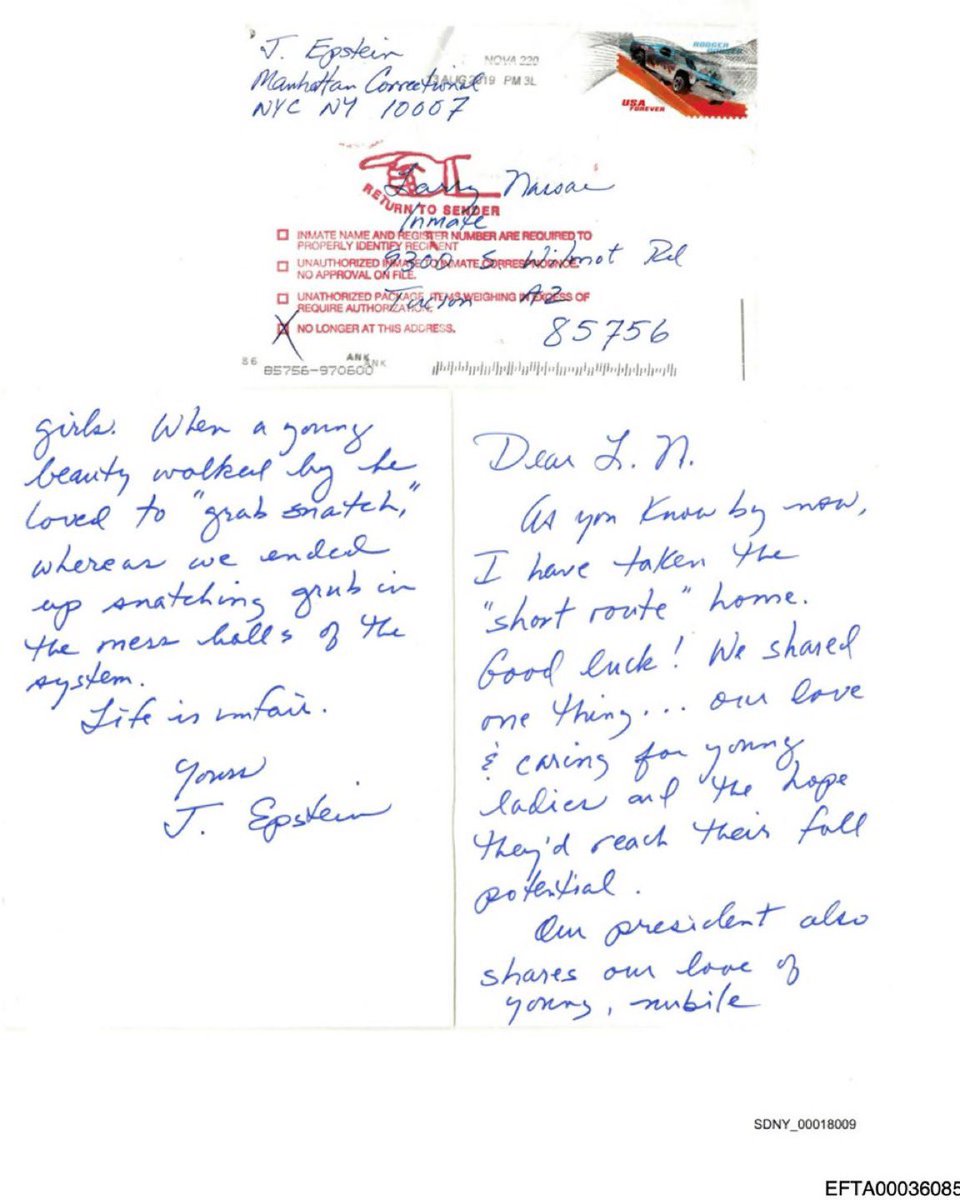 J. Epstein
Manhattan Correctional
NYC NY 10007
NOVA 220
13 AUG 2019 PM 3L
RODGER WARD
USA
FOREVER
RETURN TO SENDER
Larry Nassar
Inmate
9300 S. Wilmot Rd
Tucson AZ
85756
INMATE NAME AND REGISTER NUMBER ARE REQUIRED TO
PROPERLY IDENTIFY RECIPIENT
UNAUTHORIZED INMATE TO INMATE CORRESPONDENCE.
NO APPROVAL ON FILE.
UNATHORIZED PACKAGE, ITEMS WEIGHING IN EXCESS OF
REQUIRE AUTHORIZATION.
NO LONGER AT THIS ADDRESS.
86
ANK
ANK
85756-970600
Dear L. N.
As you know by now,
I have taken the
"short route" home.
Good luck! We shared
one thing... our love
& caring for young
ladies and the hope
they'd reach their full
potential.
Our president also
shares our love of
young, nubile
girls. When a young
beauty walked by he
loved to "grab snatch,"
whereas we ended
up snatching grub in
the mess halls of the
system.
Life is unfair.
Yours
J. Epstein
SDNY_00018009
EFTA00036085